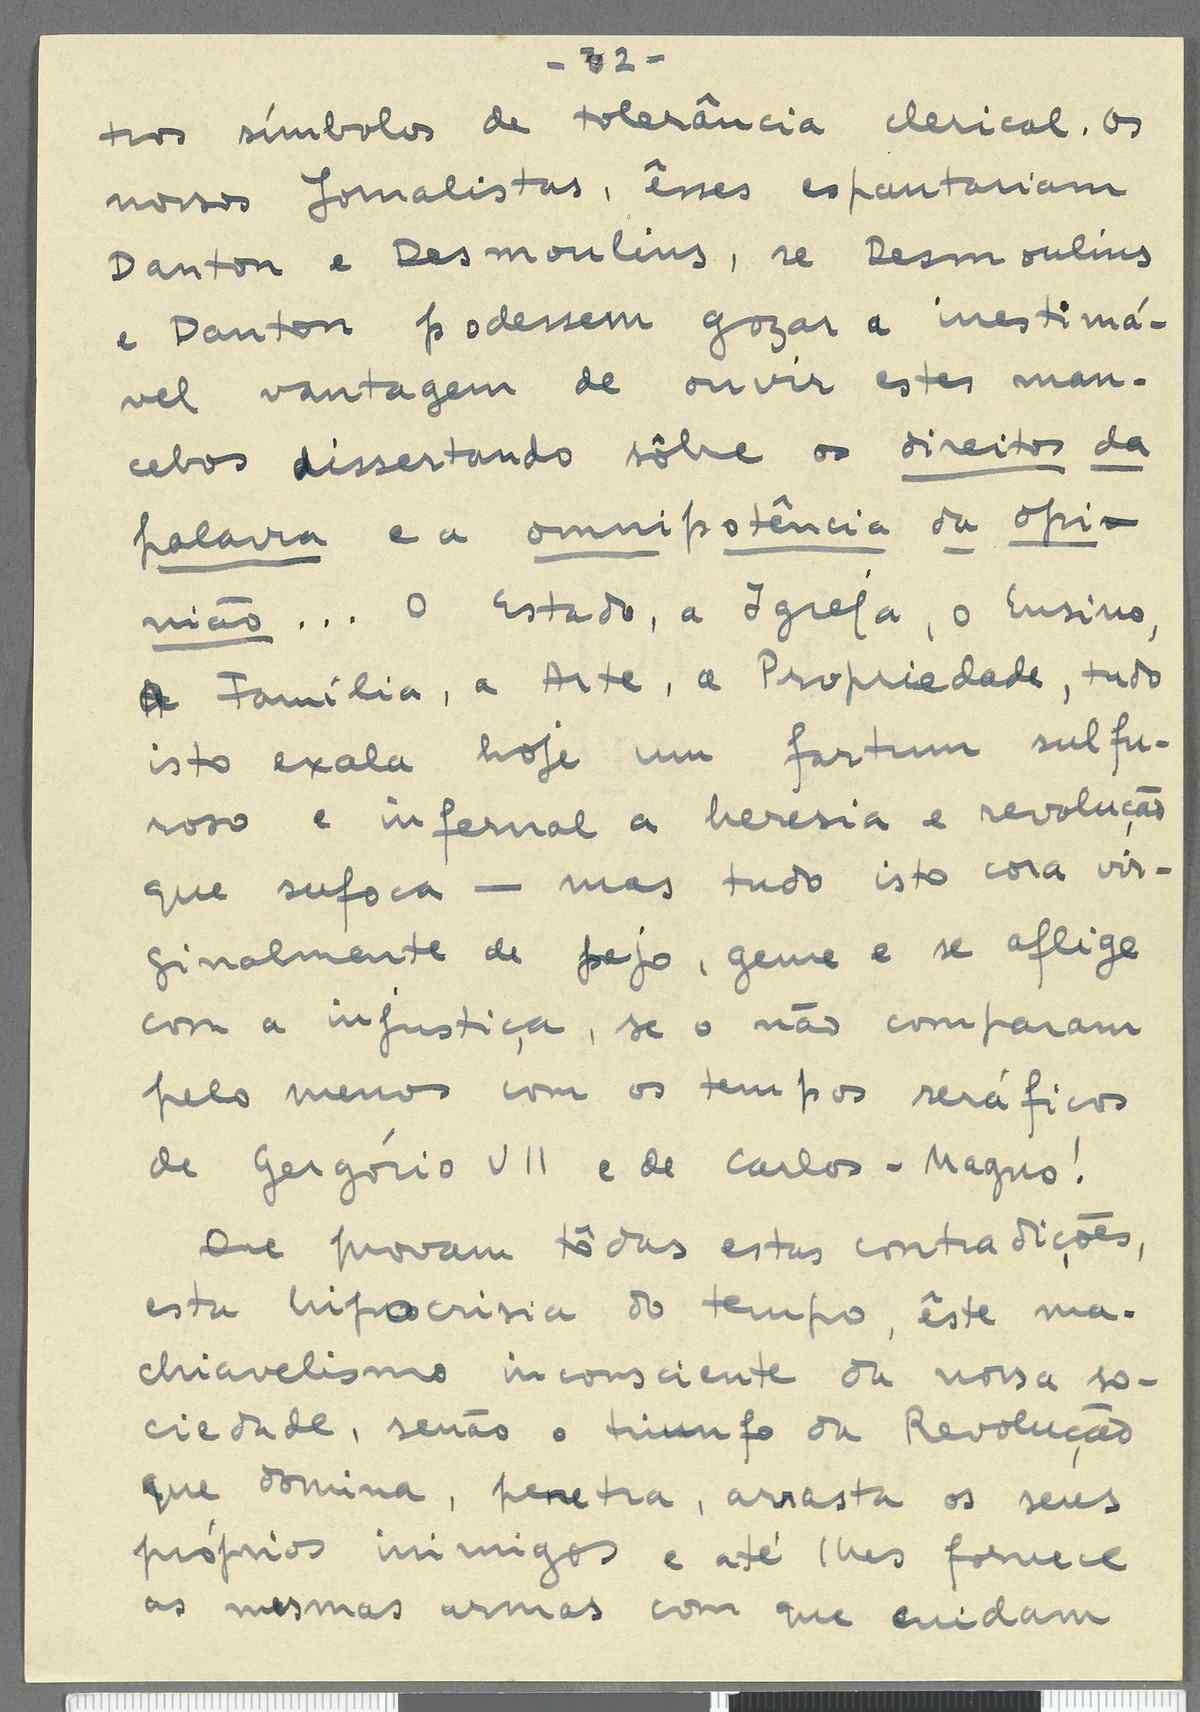 - 32 -
tros símbolos de tolerância clerical. Os
nossos Jornalistas, êsses espantariam
Danton e Desmoulins, se Desmoulins
e Danton podessem gozar a inestimá-
vel vantagem de ouvir estes man-
cebos dissertando sôbre os direitos da
palavra e a omnipotência da opi-
nião ... O Estado, a Igreja, o Ensino,
A Família, a Arte, a Propriedade, tudo
isto exala hoje um fartum sulfu-
roso e infernal a heresia e revolução
que sufoca — mas tudo isto cora vir-
ginalmente de pejo, geme e se aflige
com a injustiça, se o não comparam
pelo menos com os tempos seráficos
de Gergório VII e de Carlos-Magno!
Que provam tôdas estas contradições,
esta hipocrisia do tempo, êste ma-
chiavelismo inconsciente da nossa so-
ciedade, senão o triunfo da Revolução
que domina, penetra, arrasta os seus
próprios inimigos e até lhes fornece
as mesmas armas com que cuidam